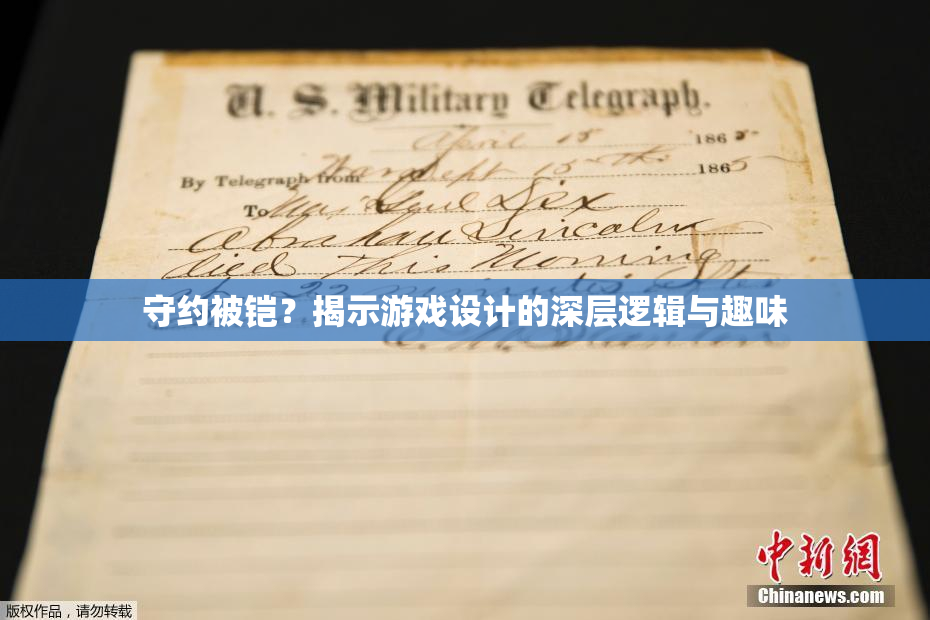 U. S. Military Telegraph.
April 15 1865
By Telegraph from War Dept 15th 1865
To Maj Genl Dix
Abraham Lincoln
died This Morning
at 22 minutes after
守约被铠？揭示游戏设计的深层逻辑与趣味
E. M. Stanton
中新網
Chinanews.com
版权作品，请勿转载